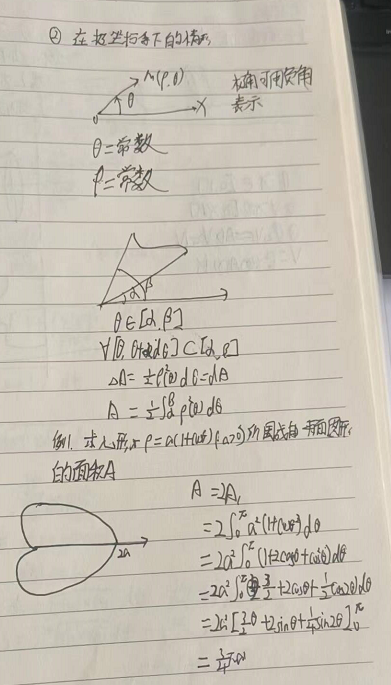 ② 在极坐标系下的情形
M(ρ,θ)
θ
o
x
极角可用负角
表示
θ=常数
ρ=常数
α β
θ∈[α,β]
∀[θ,θ+dθ]⊂[α,β]
ΔA≈½ρ²(θ)dθ=dA
A=½∫_α^β ρ²(θ)dθ
例1. 求心形线ρ=a(1+cosθ)(a>0)所围成的平面图形
的面积A
A=2A₁
=2∫₀^π a²(1+cosθ)²dθ
=2a²∫₀^π(1+2cosθ+cos²θ)dθ
2a
=2a²∫₀^π(3/2+2cosθ+½cos2θ)dθ
=2a²[3/2θ+2sinθ+¼sin2θ]₀^π